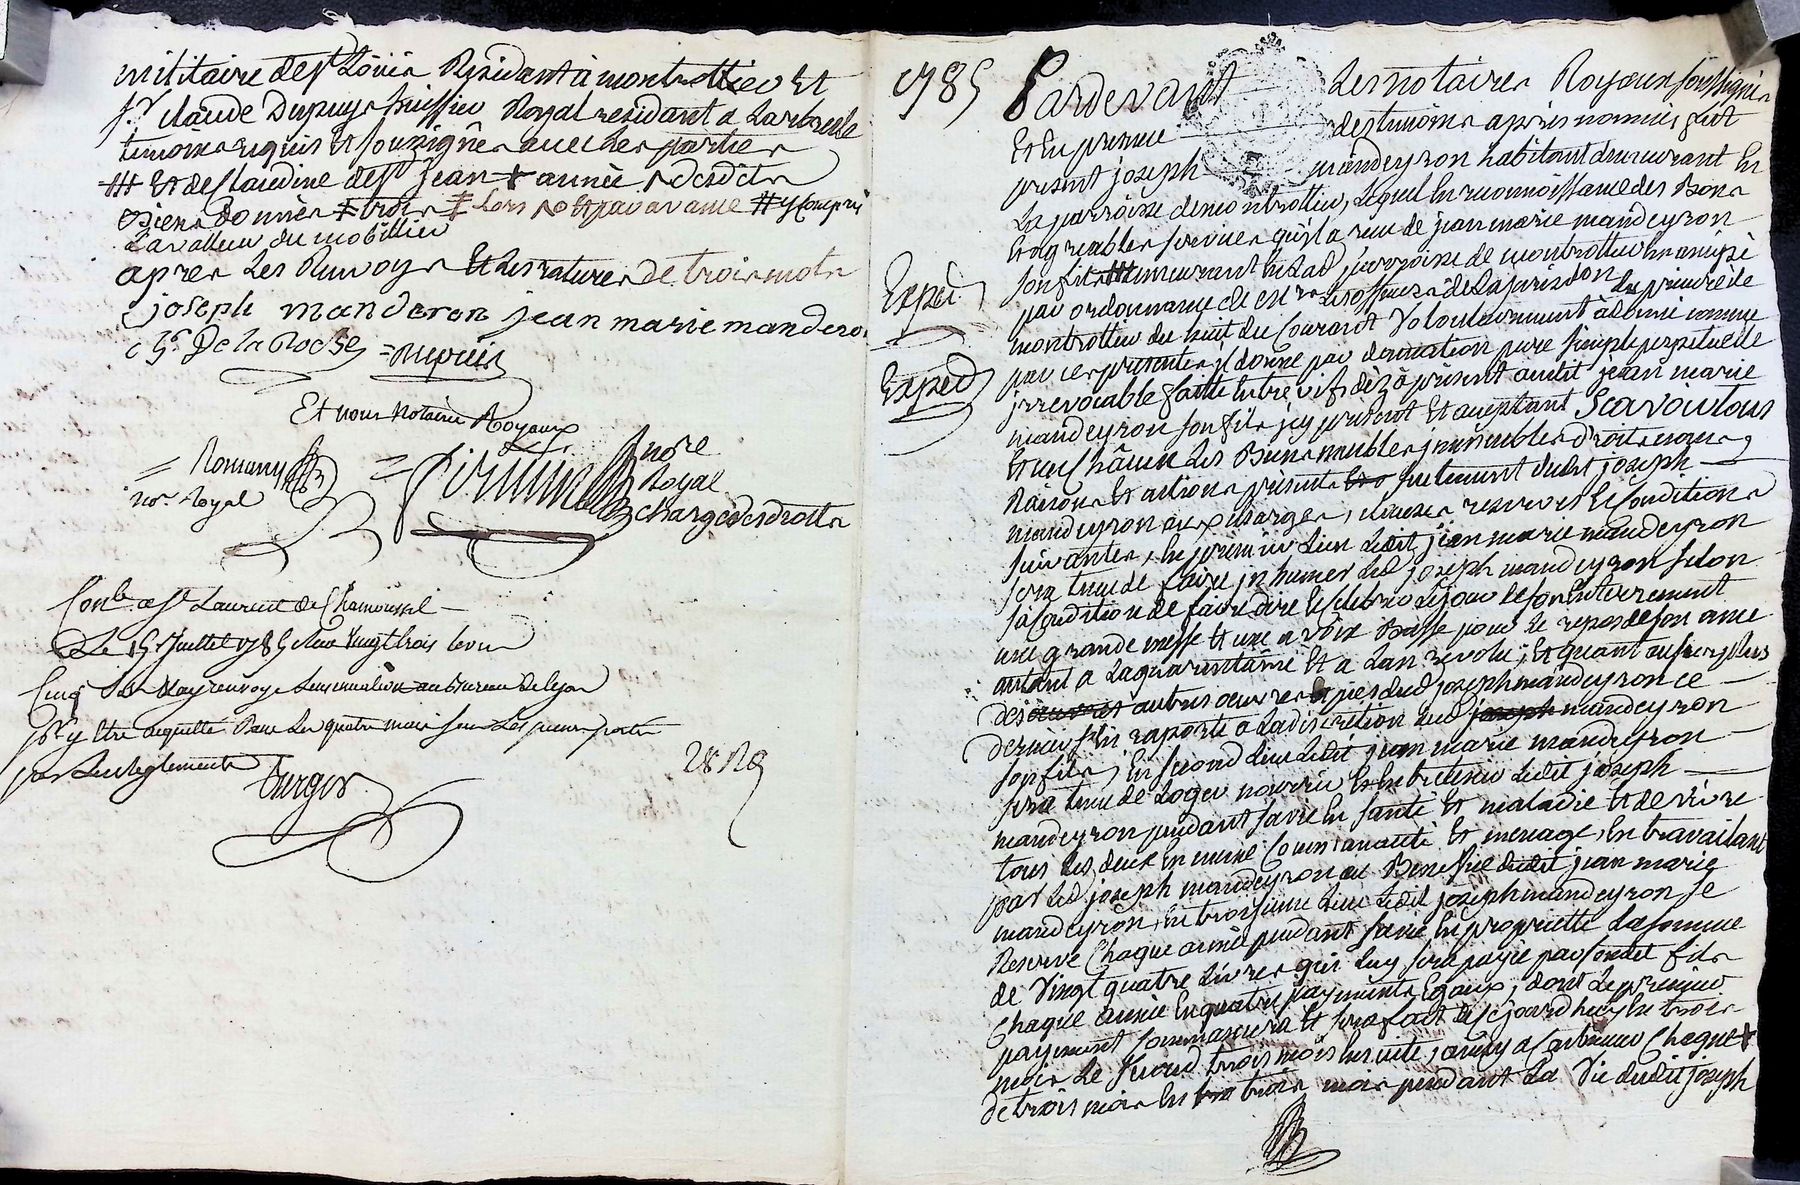 militaire de st Loüis Résidant à montrottier Et
sr. claude Dupuys huissier Royal residant a Larbresle
temoins requis Et soussignés avec Les parties
Et de Claudine de st jean + année desdits
Biens donnés ‡ trois ‡ Lors # y compris
La valleur du mobillier
apres Les Renvoys Et Les ratures de trois mots
joseph manderon jean marie mandero
De la Roche = Dupuis
Et nous Notaires Royaux
= Romany = nore
nore. Royal Royal
chargé des droits
Conlé a St Laurent de Chamousset
Le 15 juillet 1785 Reçu Vingt trois livres
Cinq sols Renvoyé Linsinuation au Bureau de Lyon
pr y être acquitté Dans Les quatre mois sous Les peines portées
par Les Reglements
28 Rs
1785 Pardevant Les Notaires Royaux soussignés
Et En presence des temoins après nommés, fut
present joseph mandeyron habitant demeurant En
La parroisse de montrottier, Lequel En reconnoissance des Bons
Et agreables services qu'il a reçu de jean marie mandeyron
son fils demeurant En Lad. parroisse de montrottier Emancipé
Exped. par ordonnance de La jurisdon de
montrottier du huit du Courant Volontairement
Exped par ces presentes Il donne par donnation pure simple perpetuelle
jrrevocable faitte Entre vifs dèz à présent audit jean marie
mandeyron son fils jcy present Et acceptant Scavoir tous
Et un Châcun Les Biens meubles jmmeubles droits noms
Raisons Et actions présents dudit joseph
mandeyron aux charges, clauses reserves Et Conditions
suivantes, En premier Lieu Ledit jean marie mandeyron
sera tenu de faire jnhumer Led. joseph mandeyron selon
sa Condition de faire dire Et celebrer Le jour de son Enterrement
une grande messe Et une a voix Basse pour Le repos de son ame
autant a La quarantaine Et a Lan revolu, Et quant au surplus
des œuvres autres œuvres pies dud joseph mandeyron ce
dernier s'En raporte a La discretion dud joseph mandeyron
son fils, En second Lieu Ledit jean marie mandeyron
sera tenu de Loger nourrir Et Entretenir Ledit joseph
mandeyron pendant sa vie En santé Et maladie Et de vivre
tous Les deux En même Communauté Et menage, En travaillant
par Led joseph mandeyron au Benefice dudit jean marie
mandeyron, En troisieme Lieu Ledit joseph mandeyron se
Reserve Chaque année pendant sa vie En proprietté La somme
de Vingt quatre Livres qui Luy sera payée par sondit fils
Chaque année En quatre payements Egaux, dont Le premier
payement Commancera Et sera fait d'jcy En trois
mois Le second trois mois Ensuite, Chaque +
de trois mois En trois mois pendant La Vie dudit joseph